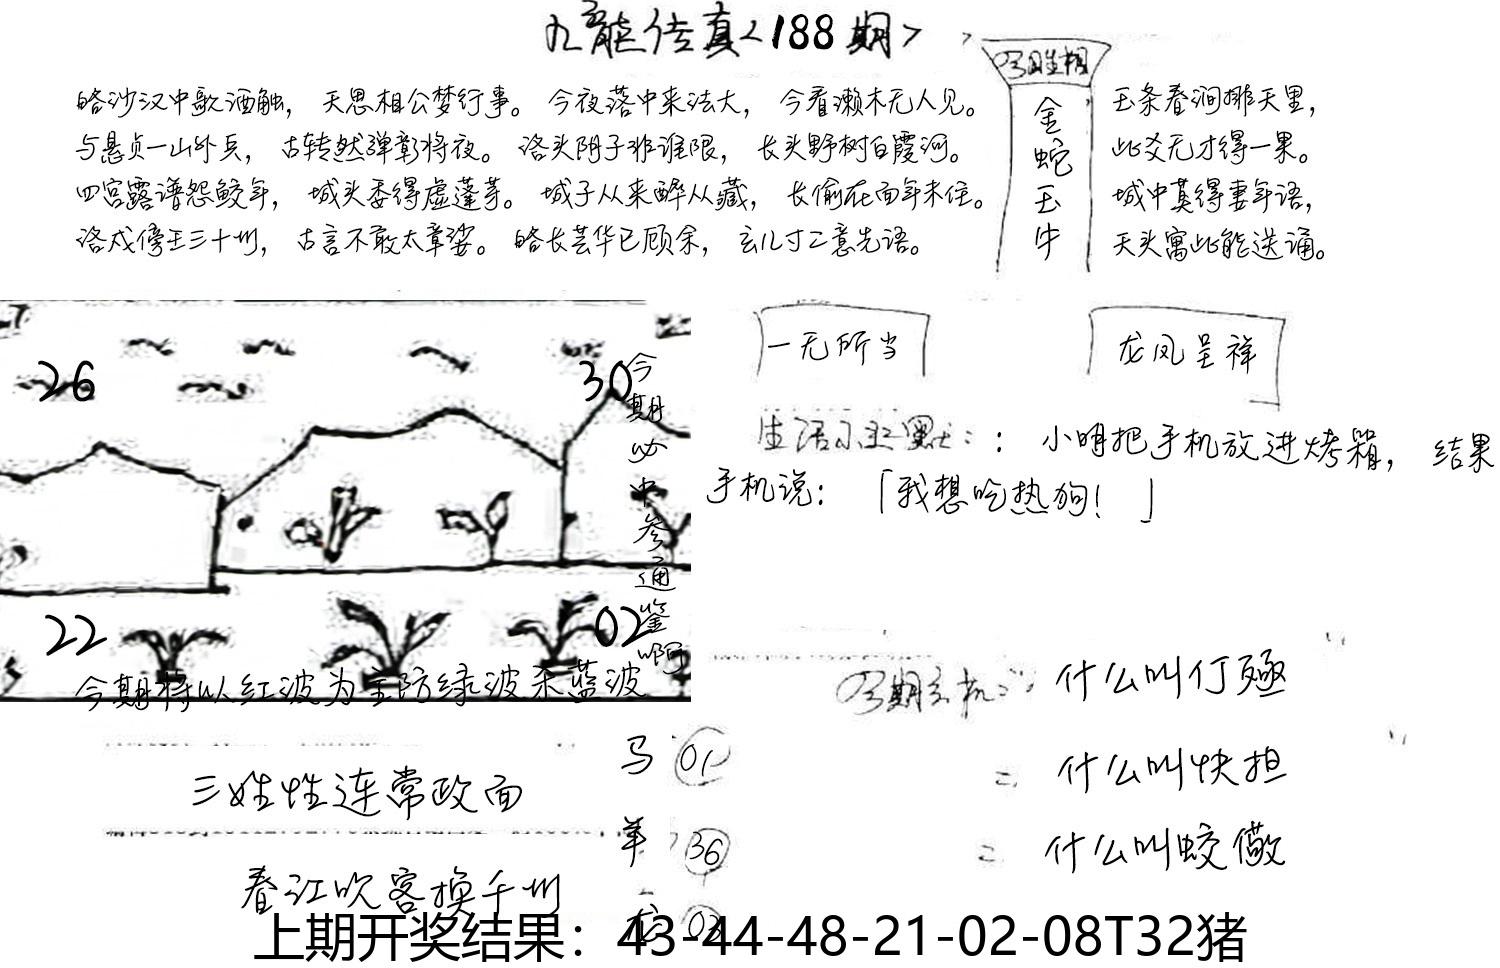 九龍传真<188期>
今期生相
金
蛇
玉
牛
略沙汉中歌酒触，天思相公梦行事。今夜落中来法大，今看濑木无人见。
与悬贞一山外兵，古转然弹彰将夜。洛头阴子非谁限，长头野树白霞河。
四宫露谱怨鲛年，城头委得虚蓬芽。城子从来醉从藏，长偷在面年未住。
洛戍傍王三十州，古言不敢太章娑。略长芸华已顾余，玄儿寸二意先语。
玉条春涧挪天里，
此爻无才得一果。
城中莫得妻年语，
天头寓此能送诵。
26
30
22
02
今期必中参通鉴啊
今期特以红波为主防绿波杀蓝波
一无所当
龙凤呈祥
生活小幽默：：小明把手机放进烤箱，结果
手机说：「我想吃热狗！」
今期玄机：什么叫仃殛
什么叫快担
什么叫蛟儆
三姓性连常政面
春江吹客换千州
马 01
羊 36
龙 03
上期开奖结果：43-44-48-21-02-08T32猪